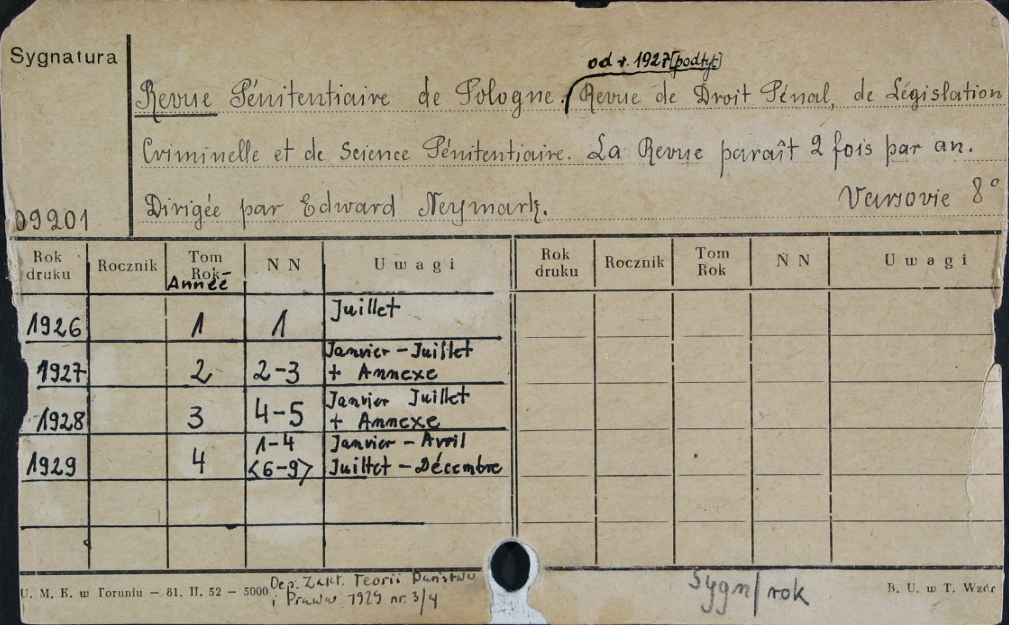 Sygnatura
od r. 1927 [podtyt]
Revue Pénitentiaire de Pologne. Revue de Droit Pénal, de Législation
Criminelle et de Science Pénitentiaire. La Revue paraît 2 fois par an.
09201 Dirigée par Edward Neymark. Varsovie 8°
Rok druku Rocznik Tom Rok Année N N Uwagi Rok druku Rocznik Tom Rok N N Uwagi
1926 1 1 Juillet
1927 2 2-3 Janvier - Juillet + Annexe
1928 3 4-5 Janvier Juillet + Annexe
1929 4 1-4 <6-9> Janvier - Avril Juillet - Décembre
Dep. Zakł. Teorii Państwa
i Prawa 1929 nr. 3/4
Sygn/rok
U. M. K. w Toruniu — 81. II. 52 — 5000
B. U. w T. Wzór